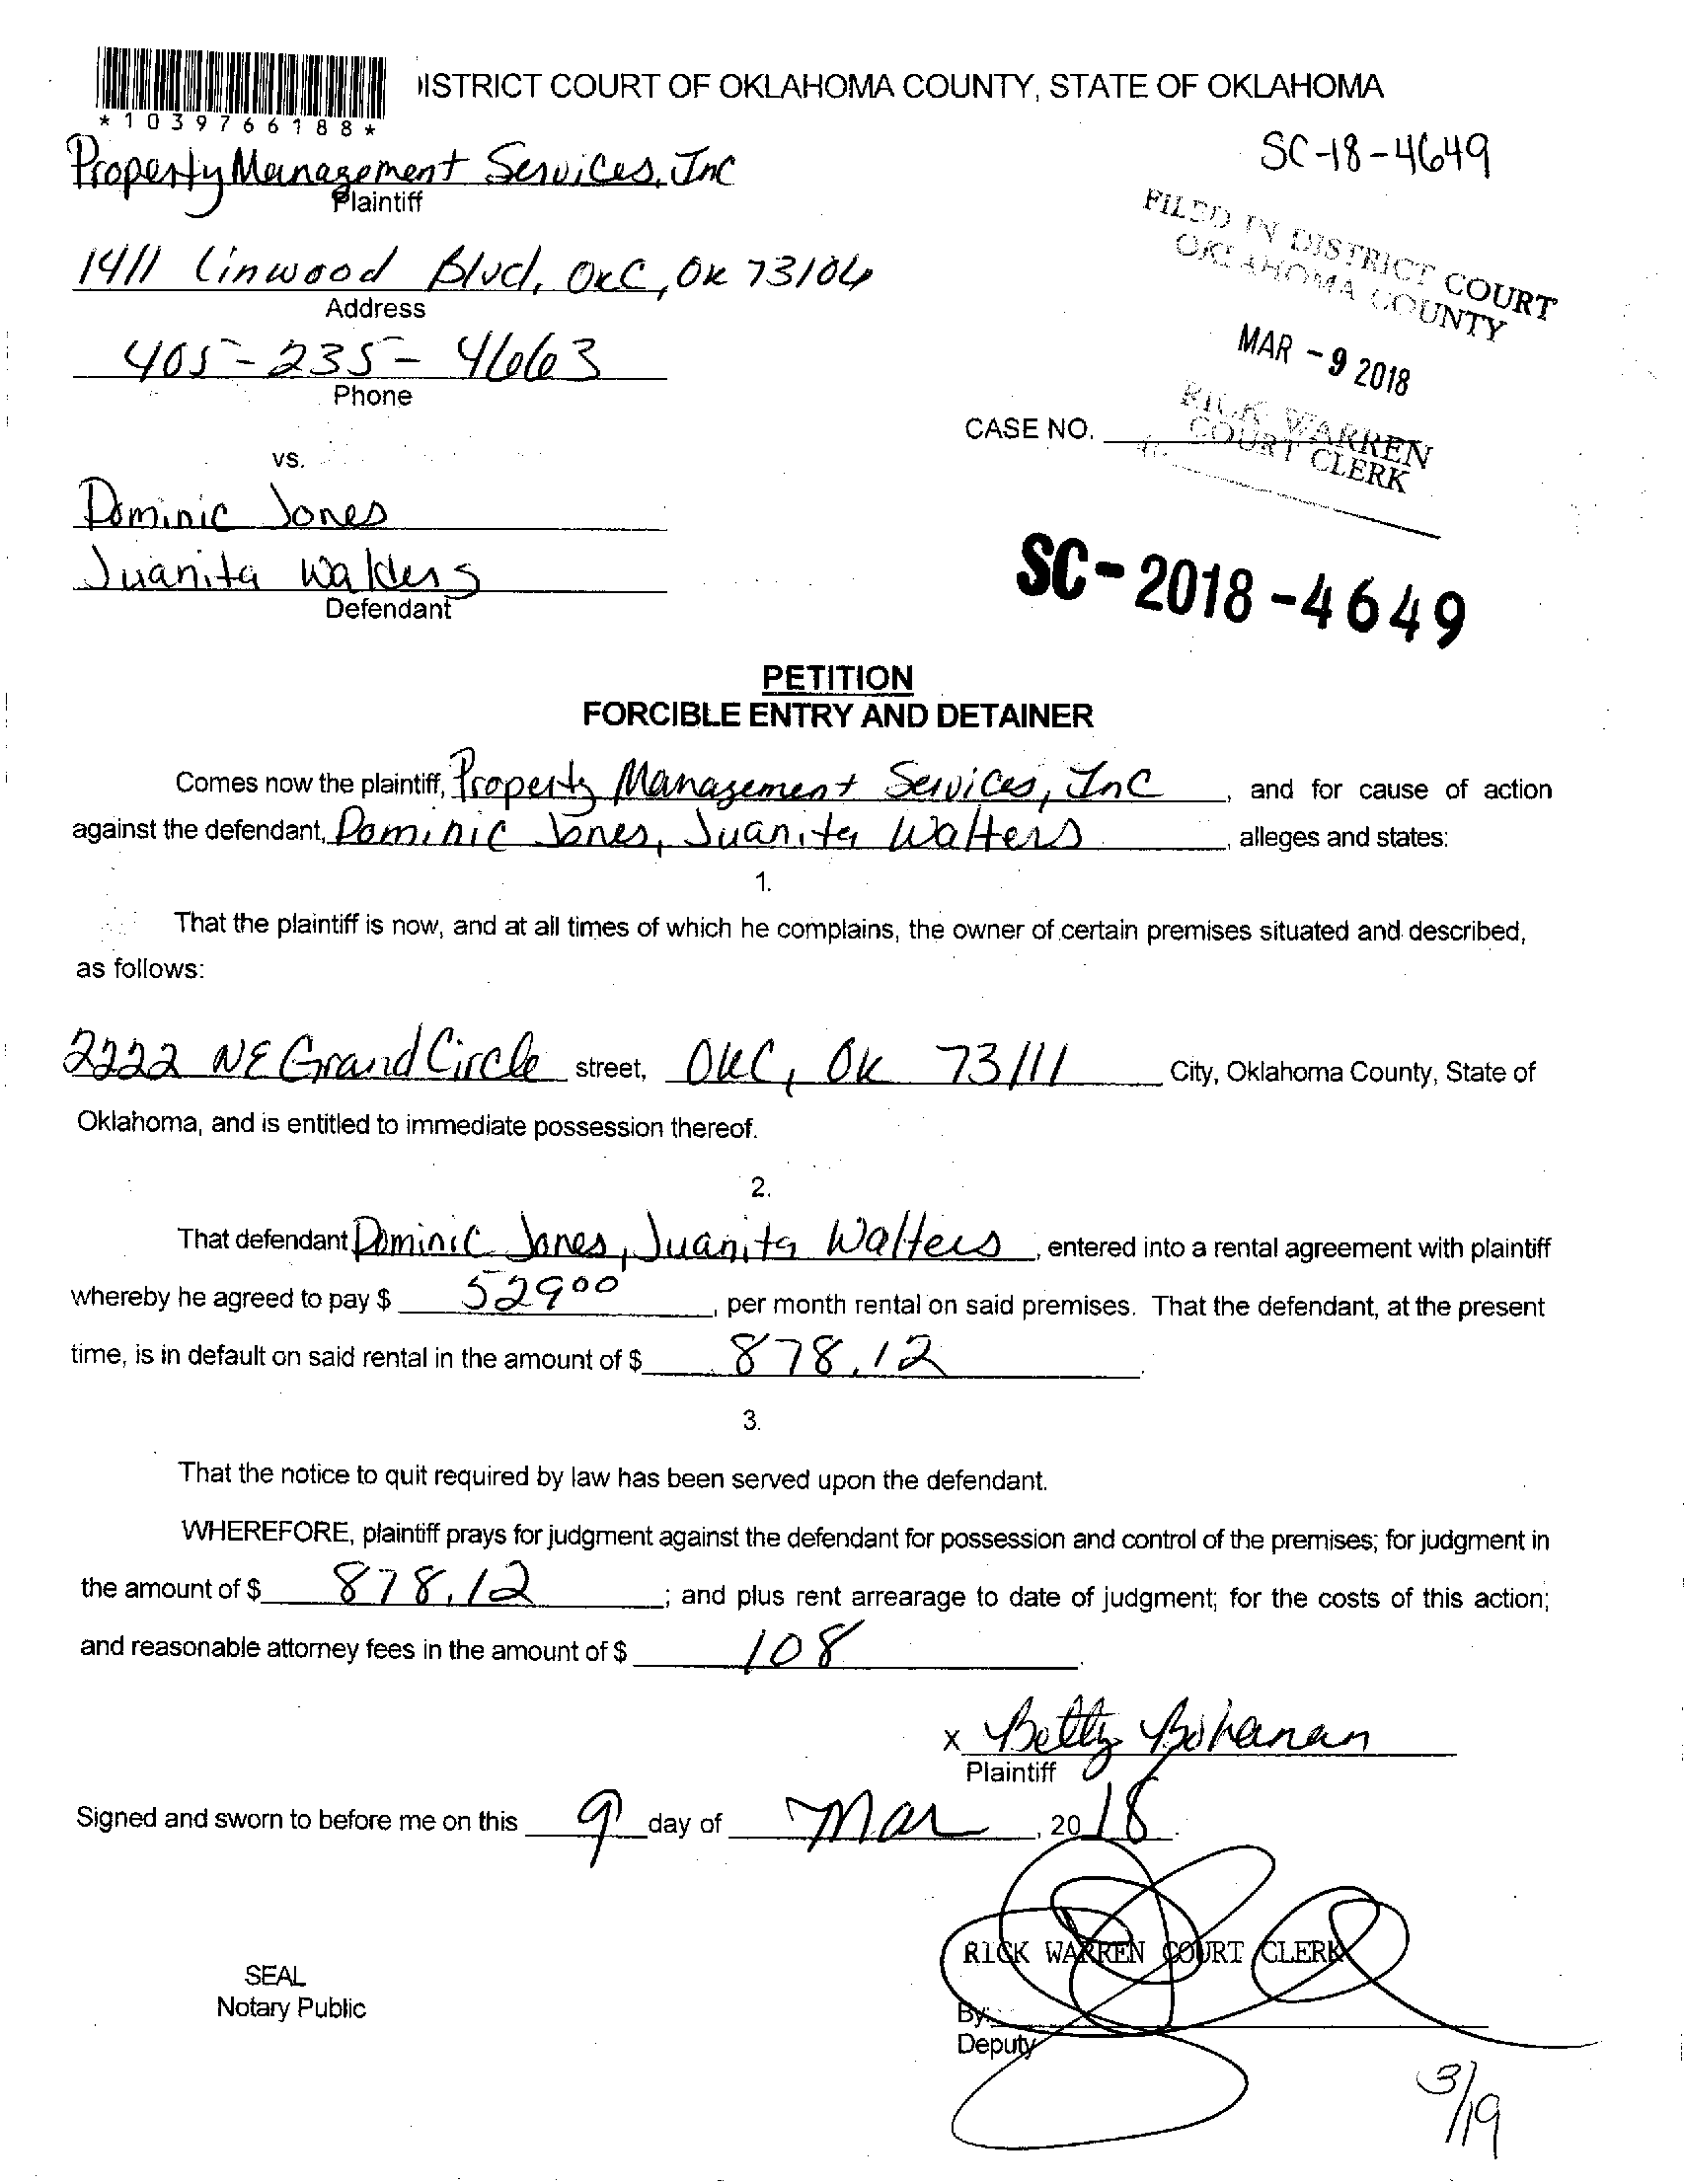 ISTRICT COURT OF OKLAHOMA COUNTY, STATE OF OKLAHOMA
*1039766188*
SC-18-4649
Property Management Services, Inc
Plaintiff
FILED IN DISTRICT COURT
OKLAHOMA COUNTY
1411 Linwood Blvd, OKC, OK 73106
Address
MAR - 9 2018
405-235-4663
Phone
RICK WARREN
COURT CLERK
CASE NO.
vs.
Dominic Jones
Juanita Walters
Defendant
SC-2018-4649
PETITION
FORCIBLE ENTRY AND DETAINER
Comes now the plaintiff, Property Management Services, Inc, and for cause of action
against the defendant, Dominic Jones, Juanita Walters, alleges and states:
1.
That the plaintiff is now, and at all times of which he complains, the owner of certain premises situated and described,
as follows:
2222 NE Grand Circle street, OKC, OK 73111 City, Oklahoma County, State of
Oklahoma, and is entitled to immediate possession thereof.
2.
That defendant Dominic Jones, Juanita Walters, entered into a rental agreement with plaintiff
whereby he agreed to pay $ 529 00, per month rental on said premises. That the defendant, at the present
time, is in default on said rental in the amount of $ 878.12.
3.
That the notice to quit required by law has been served upon the defendant.
WHEREFORE, plaintiff prays for judgment against the defendant for possession and control of the premises; for judgment in
the amount of $ 878.12; and plus rent arrearage to date of judgment; for the costs of this action;
and reasonable attorney fees in the amount of $ 108.
x Betty Bohanan
Plaintiff
Signed and sworn to before me on this 9 day of Mar, 20 18.
RICK WARREN COURT CLERK
SEAL
Notary Public
By:
Deputy
3/19